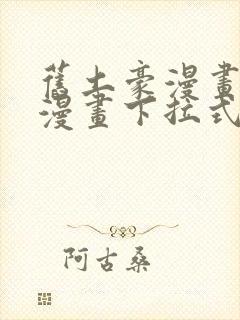 舊土豪漫畫
漫畫下拉式
阿古桑